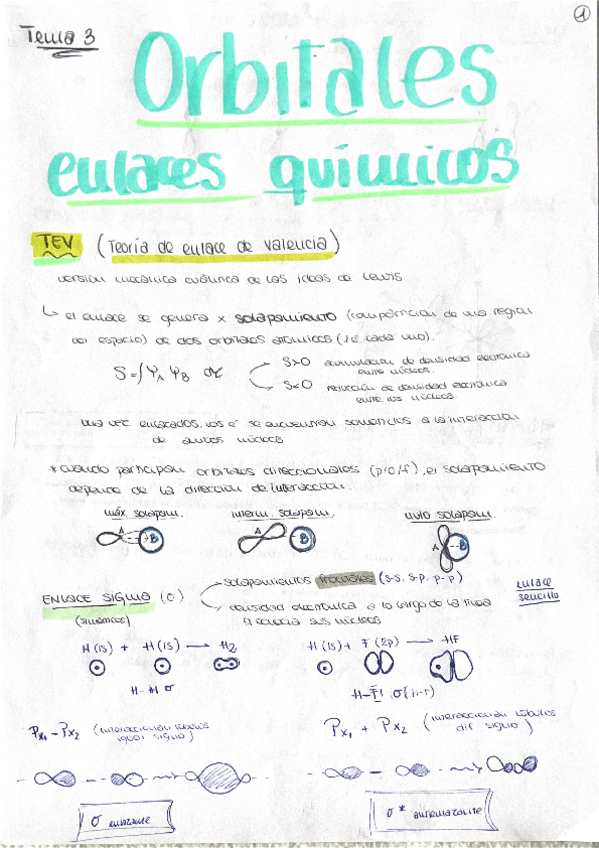 1
Tema 3
Orbitales
enlaces químicos
TEV (Teoría de enlace de valencia)
versión mecánica cuántica de las ideas de Lewis
↳ el enlace se genera x solapamiento (compartición de una región
del espacio) de dos orbitales atómicos (1e⁻ cada uno).
S = ∫ Ψ_A Ψ_B dτ
S>0 acumulación de densidad electrónica
entre núcleos.
S<0 reducción de densidad electrónica
entre los núcleos.
una vez enlazados, los e⁻ se encuentran sometidos a la interacción
de ambos núcleos
* cuando participan orbitales direccionales (p/d/f), el solapamiento
depende de la dirección de interacción.
máx solapam. interm. solapam. nulo solapam.
A B A B A B
ENLACE SIGMA (σ)
(simétrico)
solapamientos frontales (s-s, s-p, p-p)
densidad electrónica a lo largo de la línea
q conecta sus núcleos
enlace
sencillo
H (1s) + H (1s) → H2
H-H σ
H (1s) + F (2p) → HF
H-F
Px1 - Px2 (interaccionan lóbulos
igual signo)
Px1 + Px2 (interaccionan lóbulos
dif signo)
σ enlazante
σ* antienlazante